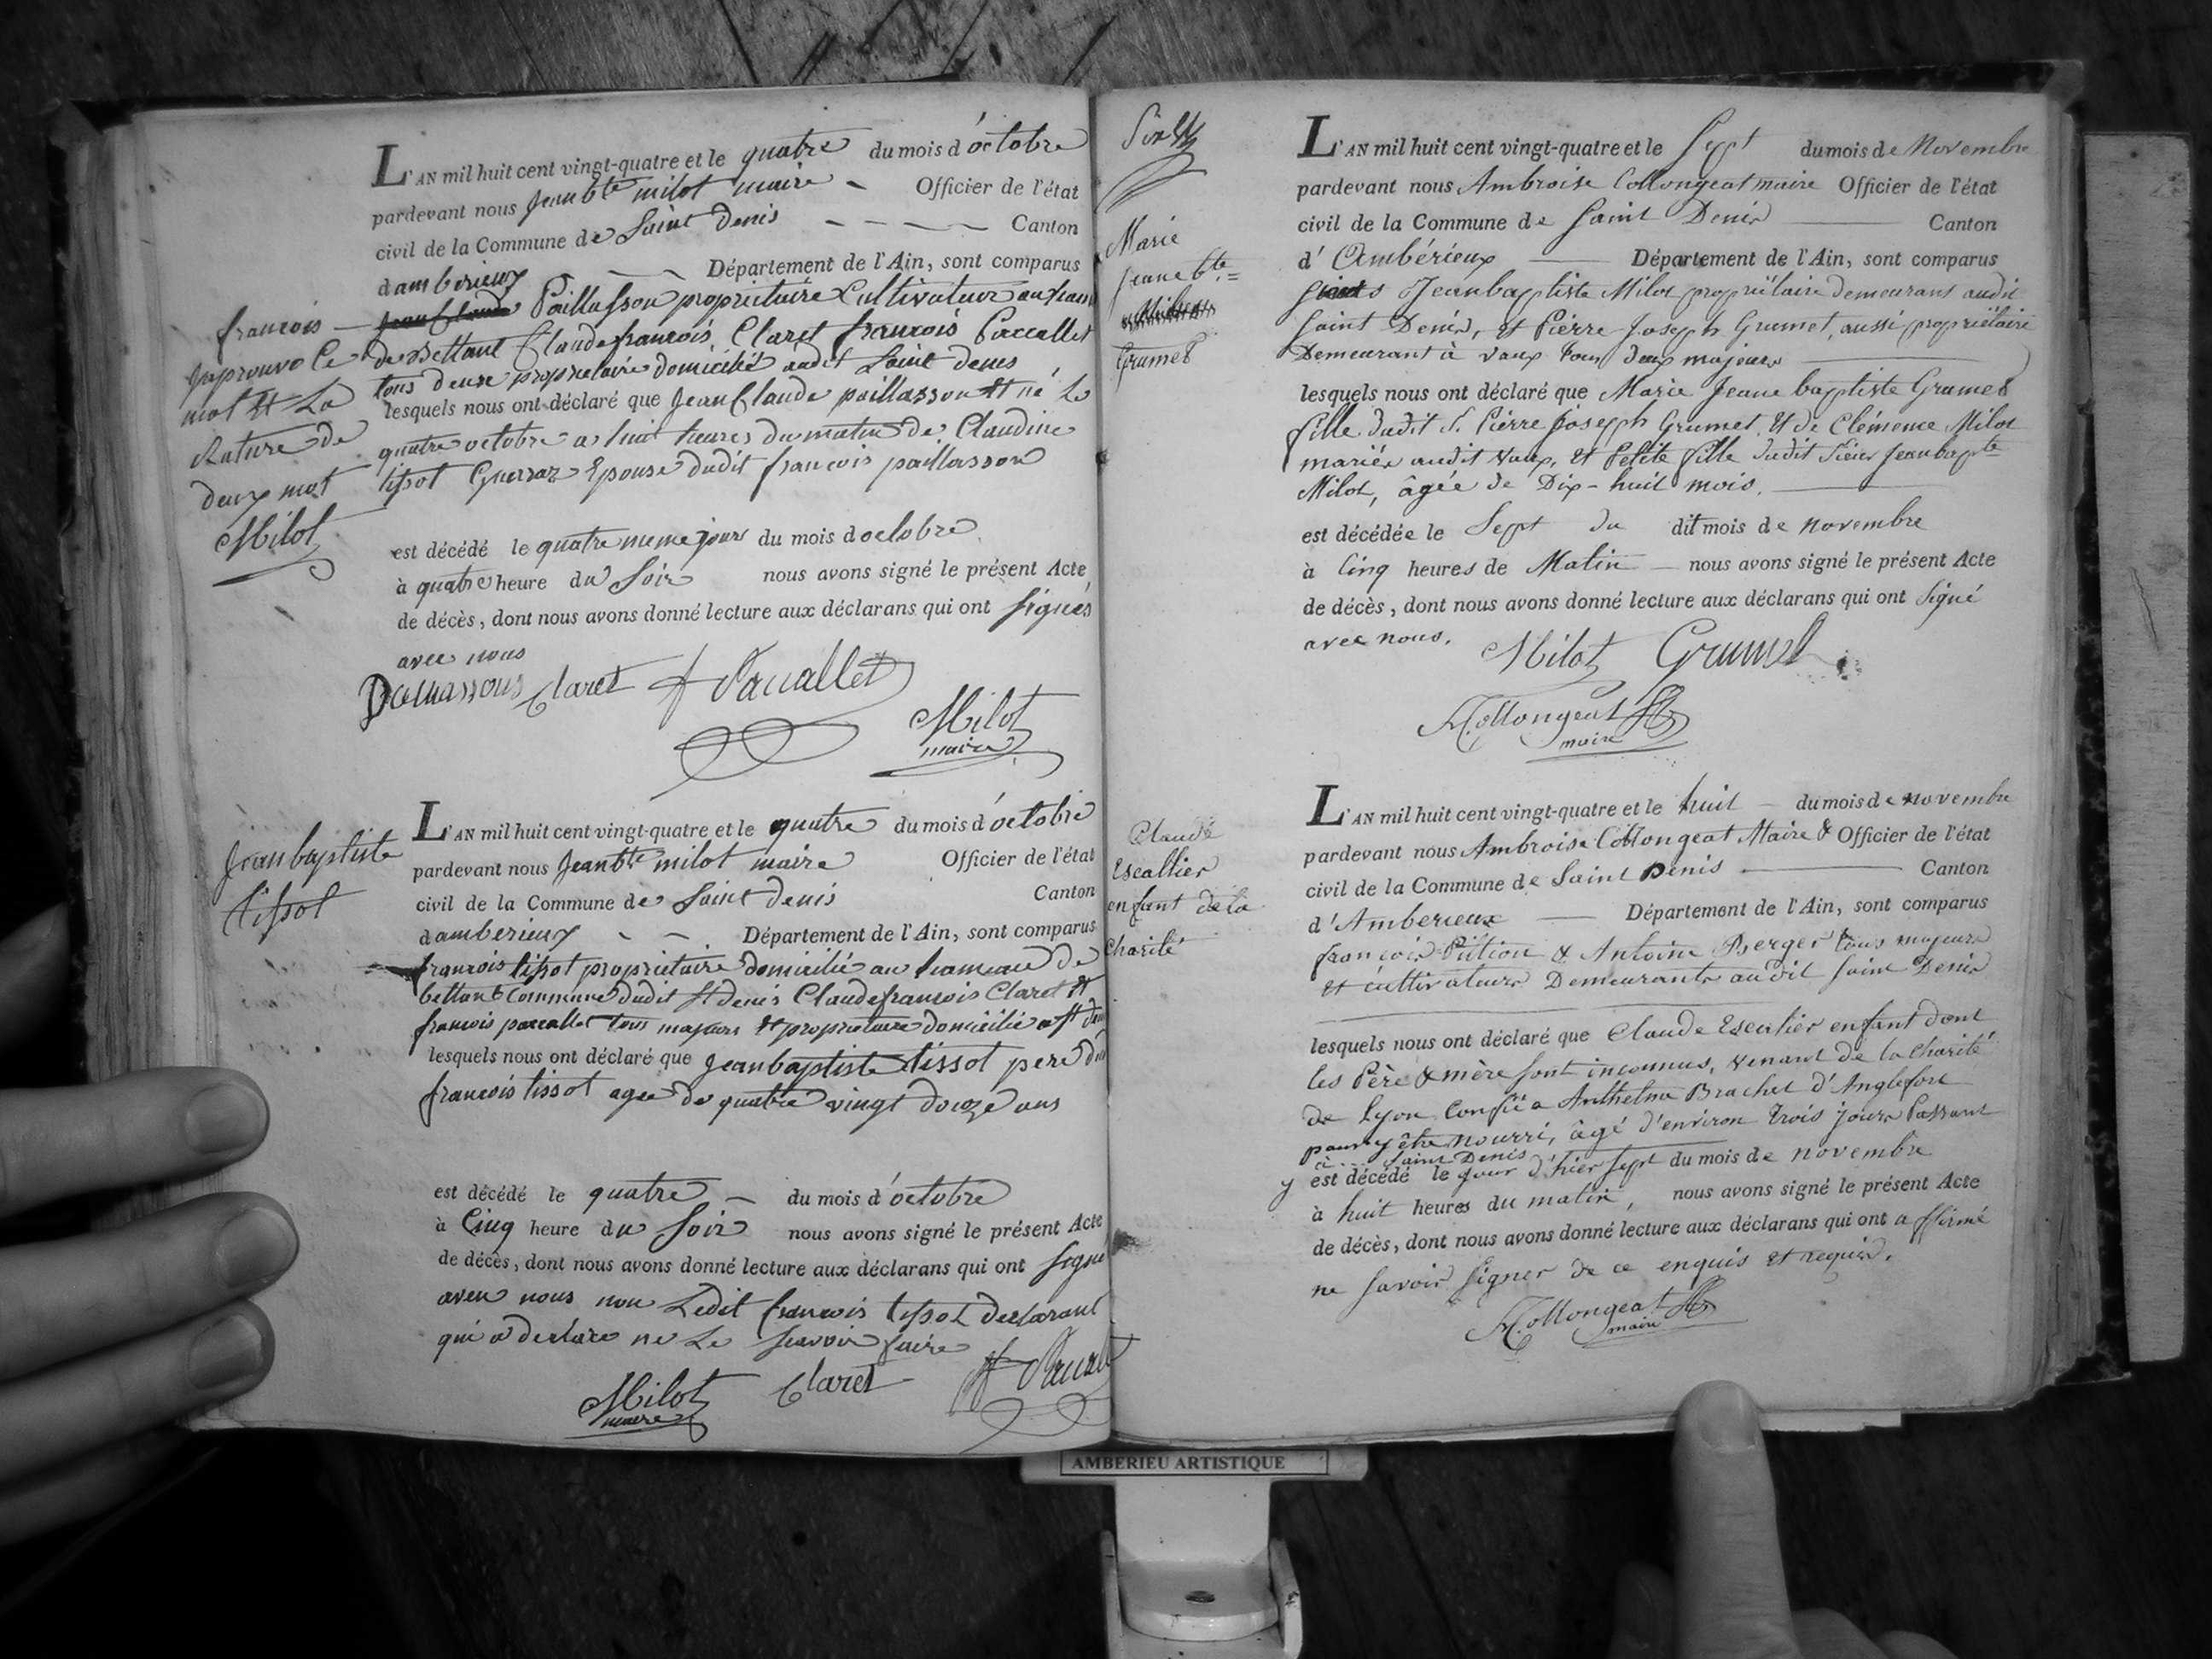 L'AN mil huit cent vingt-quatre et le quatre du mois d'octobre
pardevant nous Jean bte milot maire - Officier de l'état
civil de la Commune de Saint denis - - - - Canton
damberieux - - Département de l'Ain, sont comparus
francois - Paillasson propriétaire Cultivateur au ham
Japrouve le
mot Et La
Rature de
deux mot
Milot
de Bettant Claude francois Claret francois Paccallet
tous deux proprietaire domicilié audit Saint denis
lesquels nous ont déclaré que Jean Claude paillasson Et né Le
quatre octobre a huit heures du matin de Claudine
tissot Guerraz Epouse dudit francois paillasson
est décédé le quatre meme jours du mois doctobre
à quatre heure du Soir nous avons signé le présent Acte
de décès, dont nous avons donné lecture aux déclarans qui ont signés
avec nous
Claret f Paccallet
Milot
maire
Jean baptiste
tissot
L'AN mil huit cent vingt-quatre et le quatre du mois d'octobre
pardevant nous Jean bte milot maire Officier de l'état
civil de la Commune de Saint denis Canton
damberieux - - Département de l'Ain, sont comparus
francois tissot propriétaire domicilié au hameau de
bettant Commune dudit St denis Claude francois Claret Et
francois paccallet tous majeurs Et propriétaire domicilié a St den
lesquels nous ont déclaré que Jean baptiste tissot pere du
francois tissot agee de quatre vingt douze ans
est décédé le quatre - du mois d'octobre
à Cinq heure du Soir nous avons signé le présent Acte
de décès, dont nous avons donné lecture aux déclarans qui ont signé
avec nous non Ledit francois tissot declarant
qui a declare ne Le scavoir faire
Milot Claret
maire
Marie
Jeane bte =
Grumet
L'AN mil huit cent vingt-quatre et le Sept du mois de Novembre
pardevant nous Ambroise Collongeat maire Officier de l'état
civil de la Commune de Saint Denis Canton
d'Ambérieux Département de l'Ain, sont comparus
Jeanbaptiste Milot propriétaire demeurant audit
Saint Denis, et Pierre Joseph Grumet, aussi propriétaire
Demeurant à Vaux tous deux majeurs
lesquels nous ont déclaré que Marie Jeane baptiste Grumet
fille dudit S. Pierre Joseph Grumet, Et de Clémence Milot
mariés audit Vaux, Et Petite fille dudit Sieur Jeanbapte
Milot, âgée de Dix-huit mois.
est décédée le Sept du dit mois de novembre
à Cinq heures de Matin - nous avons signé le présent Acte
de décès, dont nous avons donné lecture aux déclarans qui ont signé
avec nous. Milot Grumet
Collongeat
maire
Claude
Escallier
enfant de la
Charité
L'AN mil huit cent vingt-quatre et le huit - du mois de novembre
pardevant nous Ambroise Collongeat Maire & Officier de l'état
civil de la Commune de Saint Denis Canton
d'Amberieux Département de l'Ain, sont comparus
françois Pition & Antoine Berger tous majeurs
et cultivateurs Demeurants audit Saint Denis
lesquels nous ont déclaré que Claude Escalier enfant dont
les Père & mère sont inconnus, venant de la Charité
de Lyon Confié a Anthelme Brachet d'Anglefort
pour y être nourri, âgé d'environ trois jours Passant
à Saint Denis
y est décédé le jour d'hier sept du mois de novembre
à huit heures du matin, nous avons signé le présent Acte
de décès, dont nous avons donné lecture aux déclarans qui ont affirmé
ne savoir signer de ce enquis et requis.
Collongeat
maire
AMBERIEU ARTISTIQUE